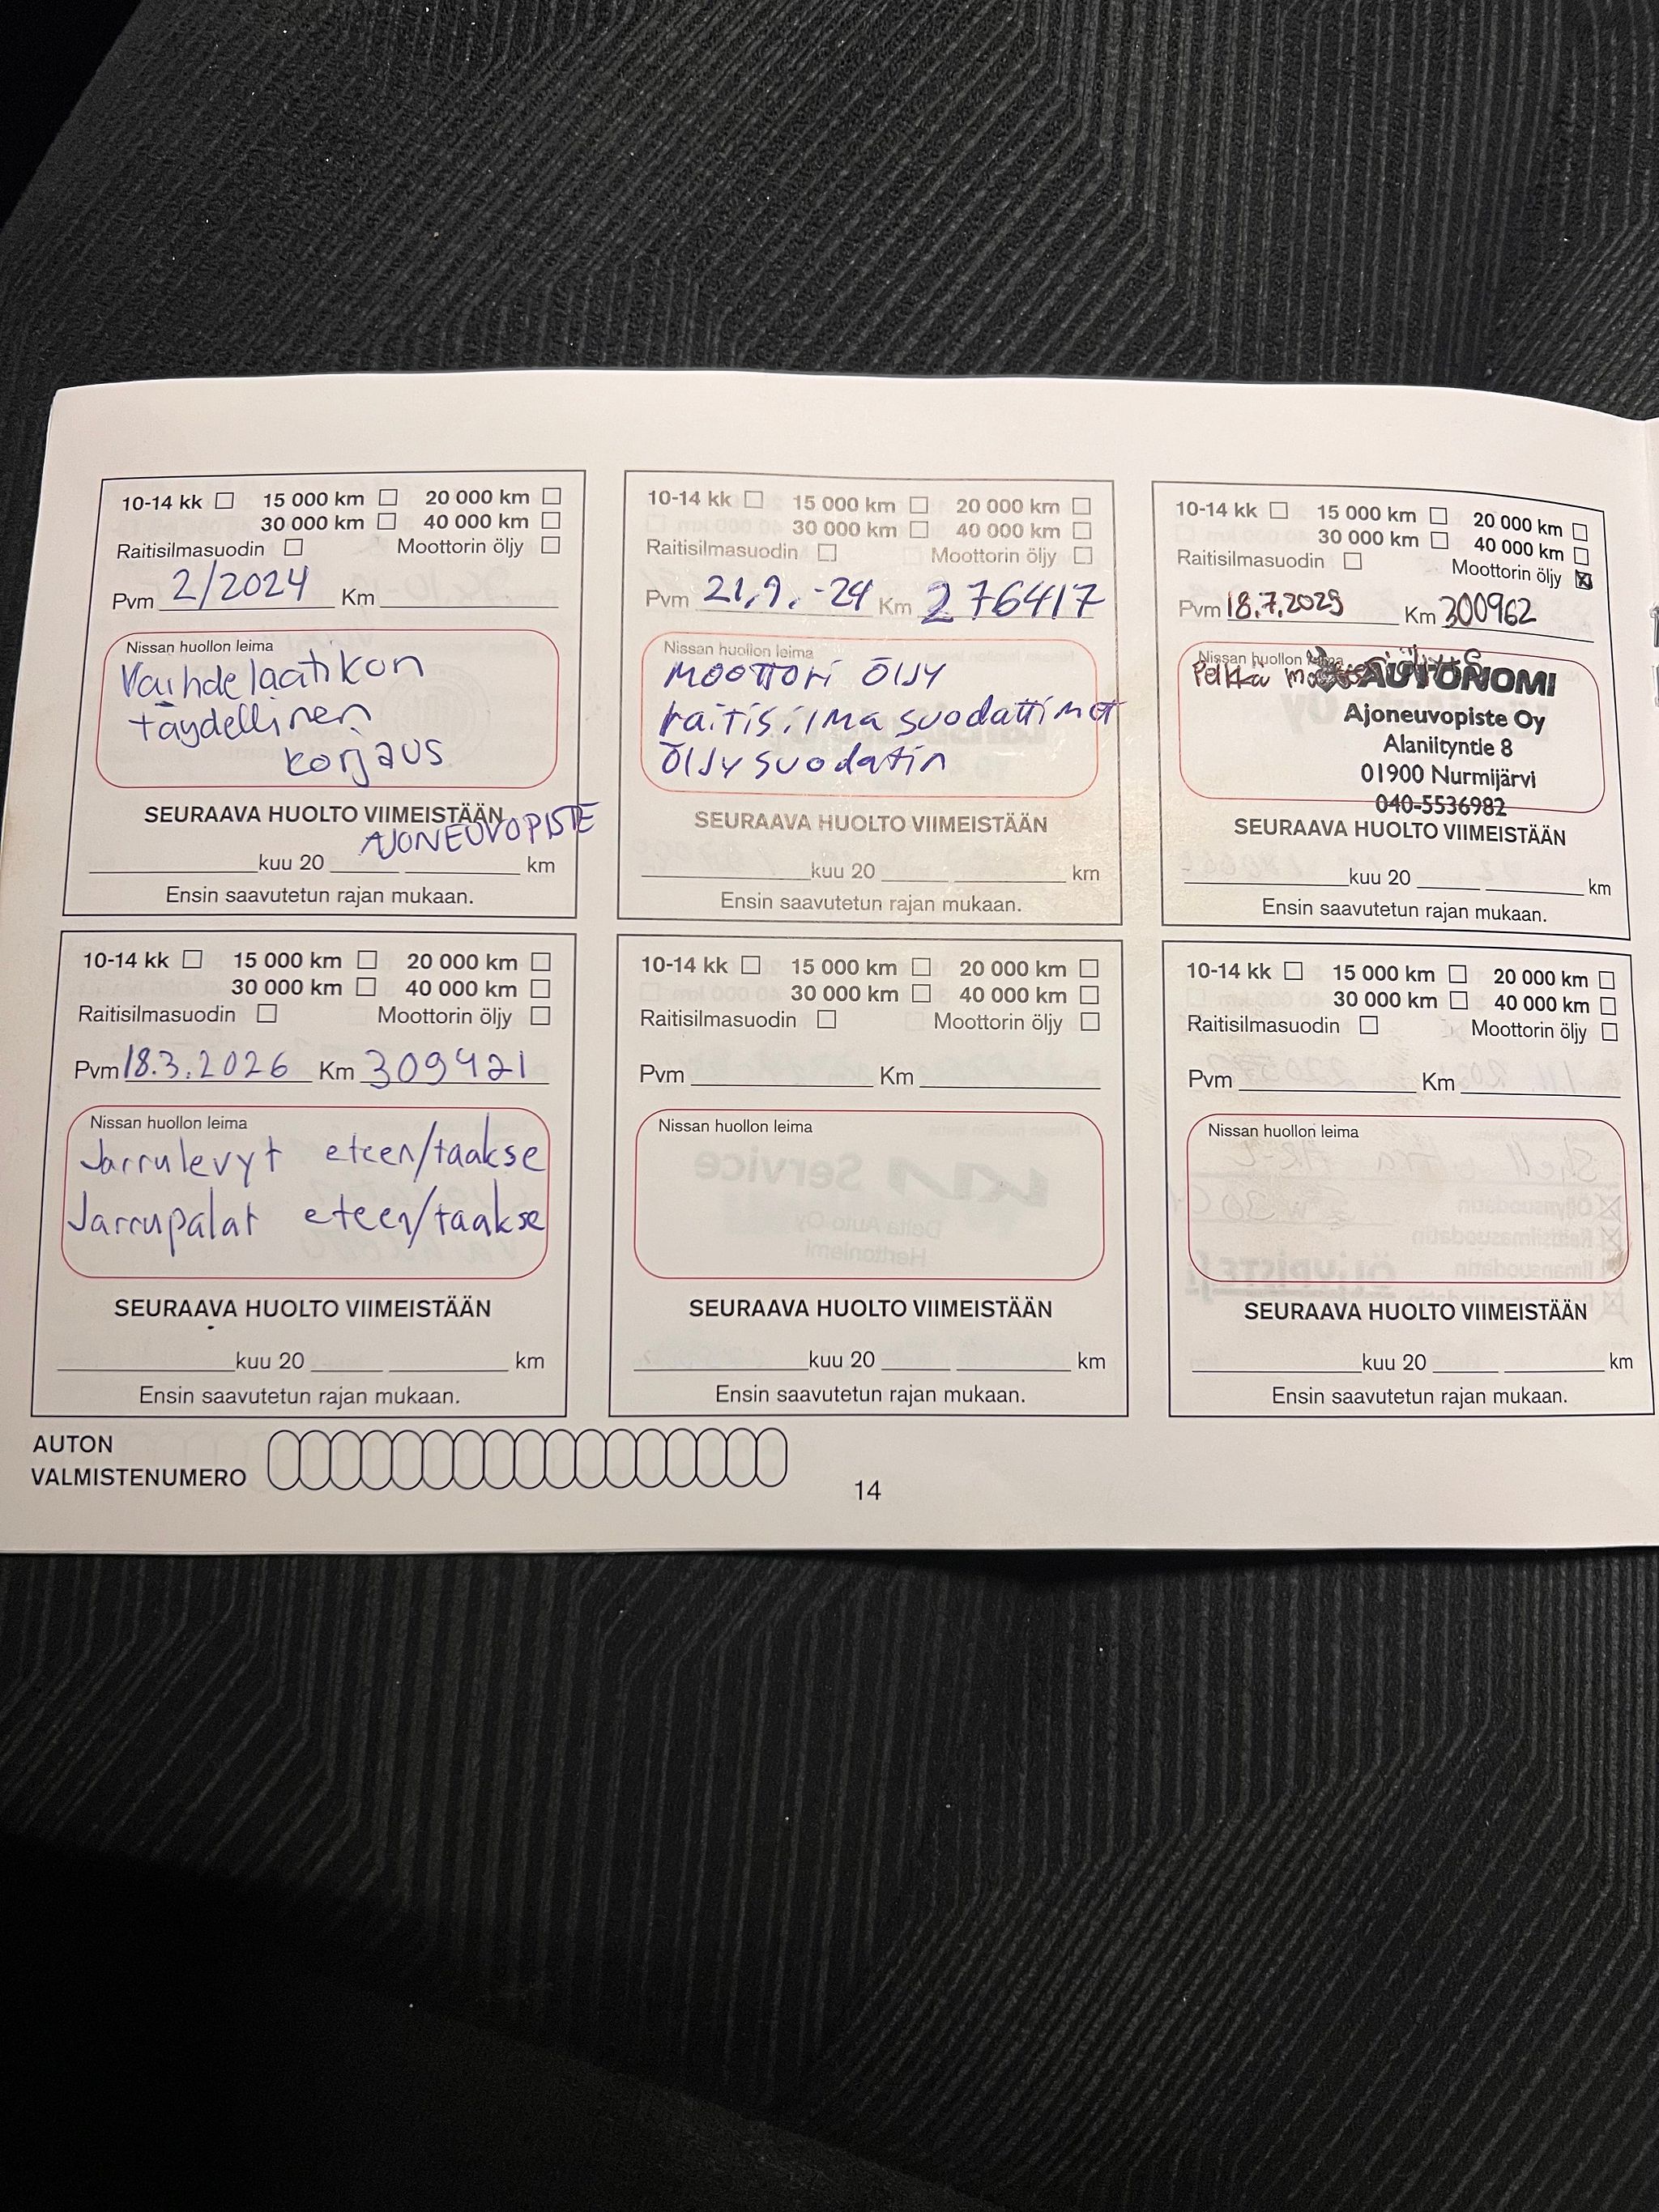 10-14 kk 15 000 km 20 000 km
30 000 km 40 000 km
Raitisilmasuodin Moottorin öljy
Pvm 2/2024 Km
Nissan huollon leima
Vaihdelaatikon
täydellinen
korjaus
SEURAAVA HUOLTO VIIMEISTÄÄN
AJONEUVOPISTE
kuu 20 km
Ensin saavutetun rajan mukaan.
10-14 kk 15 000 km 20 000 km
30 000 km 40 000 km
Raitisilmasuodin Moottorin öljy
Pvm 21,9,-24 Km 276417
Nissan huollon leima
Moottori öljy
raitisilmasuodattimet
öljysuodatin
SEURAAVA HUOLTO VIIMEISTÄÄN
kuu 20 km
Ensin saavutetun rajan mukaan.
10-14 kk 15 000 km 20 000 km
30 000 km 40 000 km
Raitisilmasuodin Moottorin öljy
Pvm 18.7.2025 Km 300962
Nissan huollon leima
Pelkkä
AUTONOMI
Ajoneuvopiste Oy
Alaniityntie 8
01900 Nurmijärvi
040-5536982
SEURAAVA HUOLTO VIIMEISTÄÄN
kuu 20 km
Ensin saavutetun rajan mukaan.
10-14 kk 15 000 km 20 000 km
30 000 km 40 000 km
Raitisilmasuodin Moottorin öljy
Pvm 18.3.2026 Km 309421
Nissan huollon leima
Jarrulevyt eteen/taakse
Jarrupalat eteen/taakse
SEURAAVA HUOLTO VIIMEISTÄÄN
kuu 20 km
Ensin saavutetun rajan mukaan.
10-14 kk 15 000 km 20 000 km
30 000 km 40 000 km
Raitisilmasuodin Moottorin öljy
Pvm Km
Nissan huollon leima
SEURAAVA HUOLTO VIIMEISTÄÄN
kuu 20 km
Ensin saavutetun rajan mukaan.
10-14 kk 15 000 km 20 000 km
30 000 km 40 000 km
Raitisilmasuodin Moottorin öljy
Pvm Km
Nissan huollon leima
SEURAAVA HUOLTO VIIMEISTÄÄN
kuu 20 km
Ensin saavutetun rajan mukaan.
AUTON
VALMISTENUMERO
14